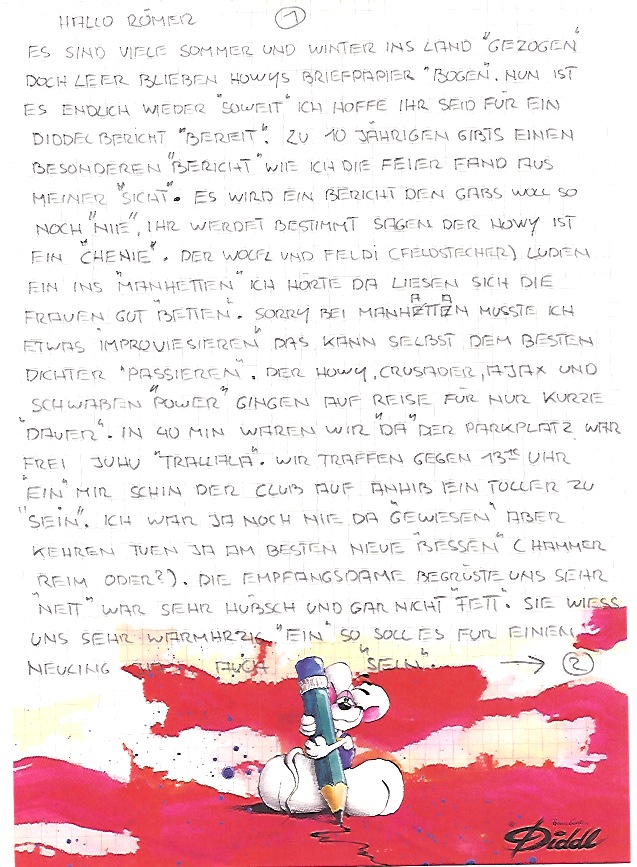 HALLO RÖMER 1
ES SIND VIELE SOMMER UND WINTER INS LAND "GEZOGEN"
DOCH LEER BLIEBEN HOWYS BRIEFPAPIER "BOGEN". NUN IST
ES ENDLICH WIEDER "SOWEIT" ICH HOFFE IHR SEID FÜR EIN
DIDDELBERICHT "BEREIT". ZU 10 JÄHRIGEN GIBTS EINEN
BESONDEREN "BERICHT" WIE ICH DIE FEIER FAND AUS
MEINER "SICHT". ES WIRD EIN BERICHT DEN GABS WOLL SO
NOCH "NIIE", IHR WERDET BESTIMMT SAGEN DER HOWY IST
EIN "CHENIE". DER WOLFL UND FELDI (FELDSTECHER) LUDEN
EIN INS "MANHETTEN" ICH HÖRTE DA LIESEN SICH DIE
FRAUEN GUT "BETTEN". SORRY BEI MANHATTAN MUSSTE ICH
ETWAS "IMPROVIESIEREN" DAS KANN SELBST DEM BESTEN
DICHTER "PASSIEREN". DER HOWY, CRUSADER, AJAX UND
SCHWABEN "POWER" GINGEN AUF REISE FÜR NUR KURZE
"DAUER". IN 40 MIN WAREN WIR "DA" DER PARKPLATZ WAR
FREI JUHU "TRALLALA". WIR TRAFFEN GEGEN 13 UHR
"EIN" MIR SCHIN DER CLUB AUF ANHIB EIN TOLLER ZU
"SEIN". ICH WAR JA NOCH NIE DA "GEWESEN" ABER
KEHREN TUEN JA AM BESTEN NEUE "BESSEN" (HAMMER
REIM ODER?). DIE EMPFANGSDAME BEGRÜSTE UNS SEHR
"NETT" WAR SEHR HÜBSCH UND GAR NICHT "FETT". SIE WIESS
UNS SEHR WARMHRZIG "EIN" SO SOLL ES FÜR EINEN
NEULING AUCH "SEIN". → 2
Diddl